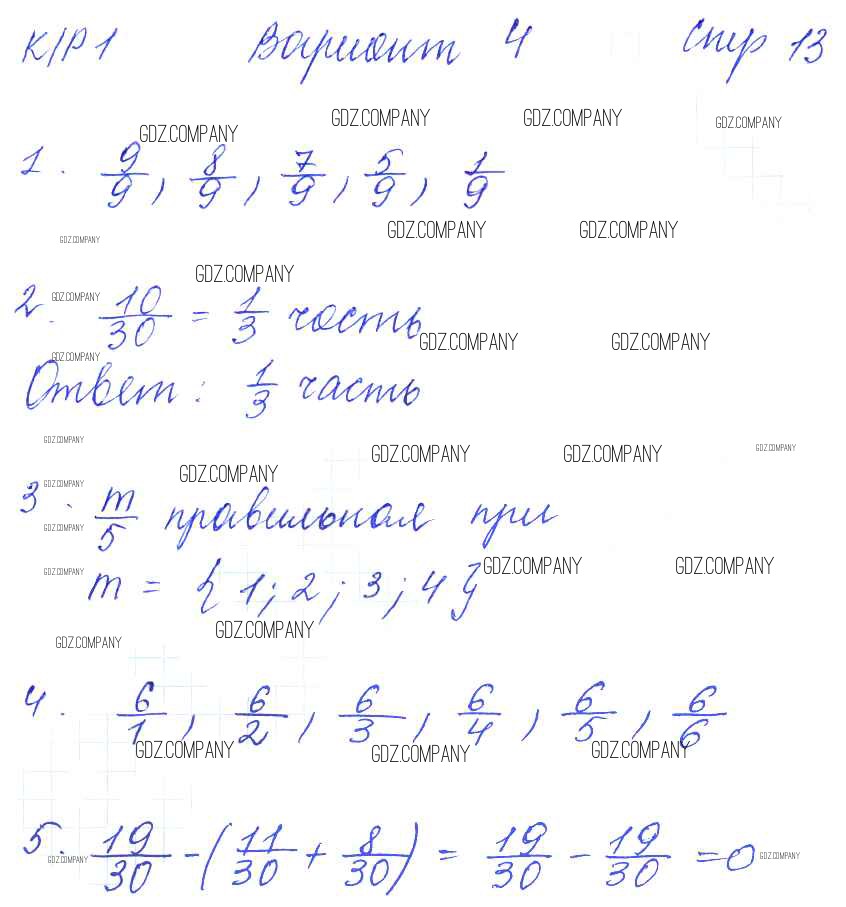 К/Р 1 Вариант 4 Стр 13
GDZ.COMPANY GDZ.COMPANY GDZ.COMPANY GDZ.COMPANY
1. 9/9, 8/9, 7/9, 5/9, 1/9
GDZ.COMPANY GDZ.COMPANY GDZ.COMPANY
GDZ.COMPANY
2. GDZ.COMPANY 10/30 = 1/3 часть
GDZ.COMPANY GDZ.COMPANY
GDZ.COMPANY
Ответ: 1/3 часть
GDZ.COMPANY GDZ.COMPANY GDZ.COMPANY GDZ.COMPANY
GDZ.COMPANY
GDZ.COMPANY
3. m/5 правильная при
GDZ.COMPANY
GDZ.COMPANY m = {1; 2; 3; 4} GDZ.COMPANY GDZ.COMPANY
GDZ.COMPANY GDZ.COMPANY
4. 6/1, 6/2, 6/3, 6/4, 6/5, 6/6
GDZ.COMPANY GDZ.COMPANY GDZ.COMPANY
5. 19/30 - (11/30 + 8/30) = 19/30 - 19/30 = 0
GDZ.COMPANY GDZ.COMPANY